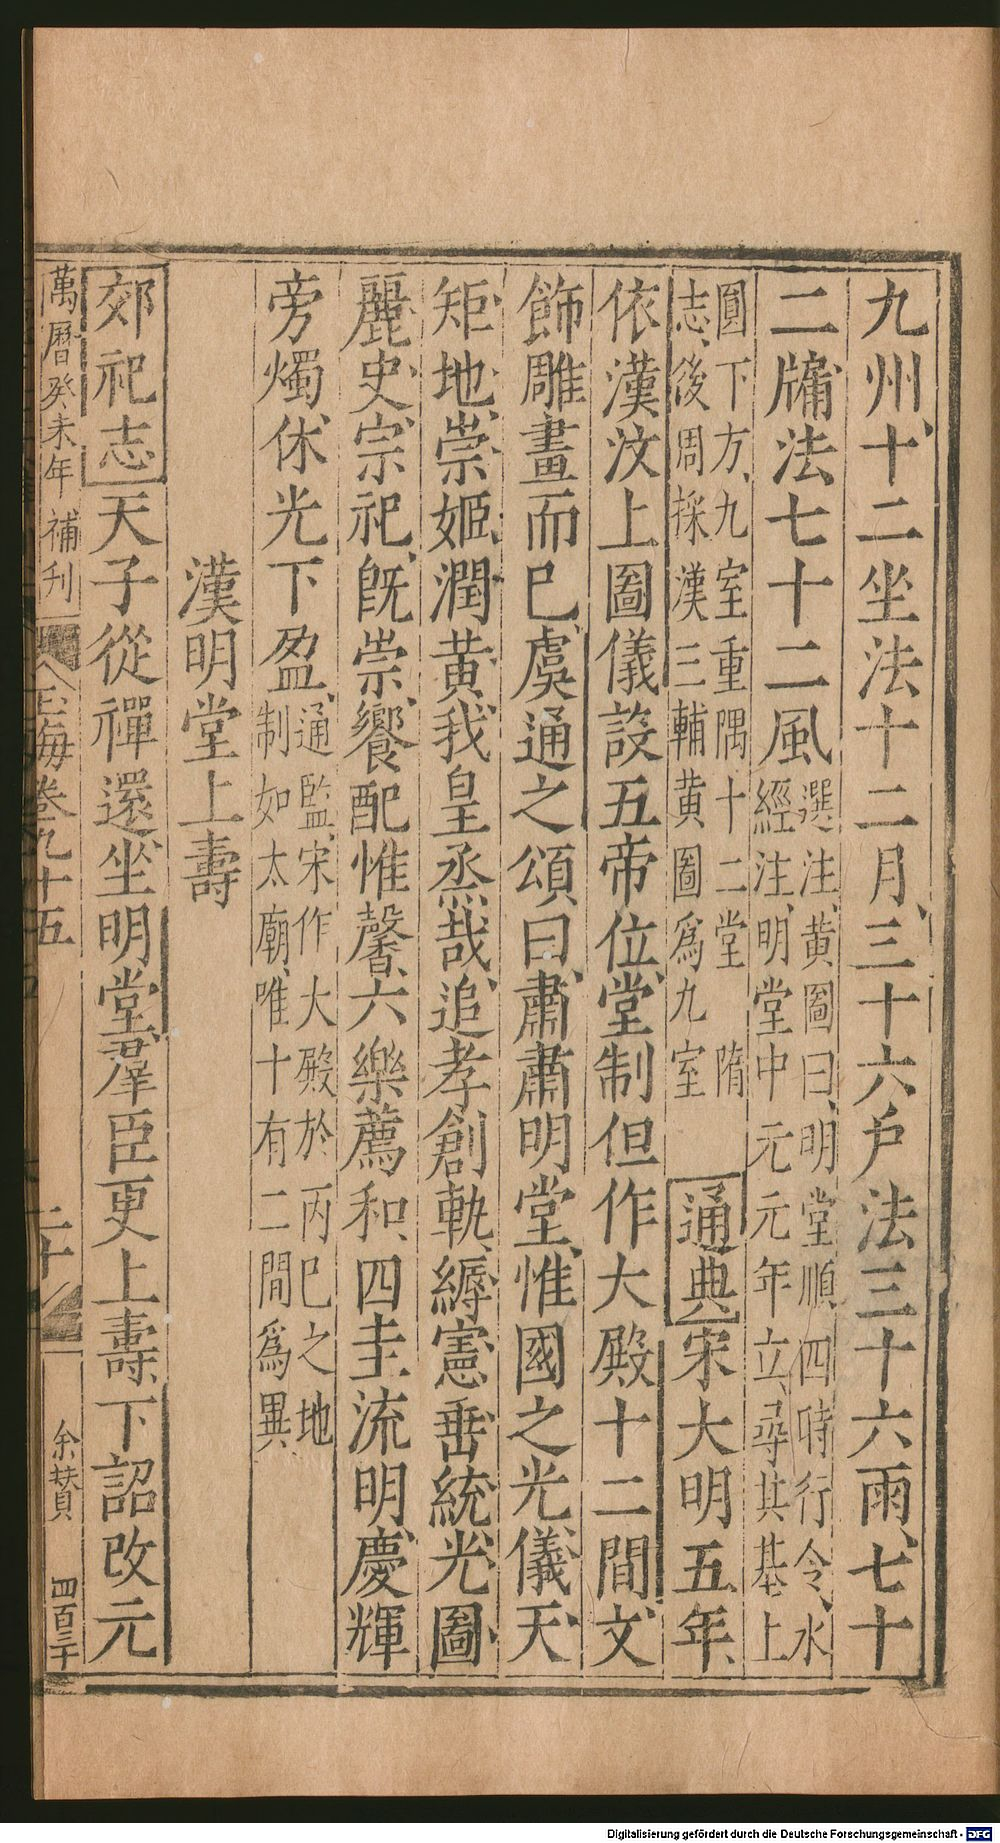 九州、十二坐法十二月、三十六戶法三十六雨、七十
二牖法七十二風選注、黃圖曰、明堂順四時行令、水
經注、明堂中元元年立、尋其基上
圓下方、九室重隅十二堂 隋
志、後周採漢三輔黃圖爲九室
通典宋大明五年、
依漢汶上圖儀設五帝位、堂制但作大殿十二間、文
飾雕畫而已虞通之頌曰、肅肅明堂、惟國之光、儀天、
矩地、崇姬潤黃、我皇烝哉、追孝創軌、縟憲垂統、光圖
麗史、宗祀旣崇、饗配惟馨、六樂薦和、四圭流明、慶輝
旁燭、休光下盈、通監、宋作大殿於丙巳之地
制如太廟、唯十有二間爲異、
漢明堂上壽
郊祀志天子從禪還、坐明堂、羣臣更上壽、下詔改元
萬曆癸未年補刊
玉海卷九十五
二十
余贊
四百三十
Digitalisierung gefördert durch die Deutsche Forschungsgemeinschaft - DFG